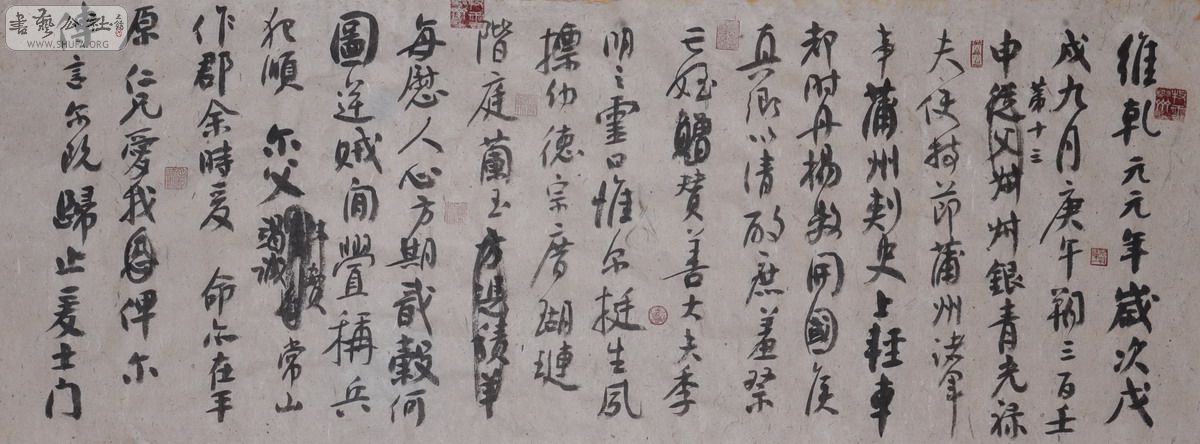 維乾元元年歲次戊
戌九月庚午朔三日壬
第十三
申從父叔叔銀青光祿
夫使持節蒲州諸軍
事蒲州刺史上輕車
都尉丹楊縣開國侯
真卿以清酌庶羞祭
亡姪贈贊善大夫季
明之靈曰惟尔挺生夙
摽幼德宗廟瑚璉
階庭蘭玉方憑積善
每慰人心方期戩穀何
圖逆賊閒釁稱兵
犯順 尔父竭誠常山
作郡余時受 命亦在平
原仁兄愛我恩俾尔
傳言尔既歸止爰土门
書藝公社
WWW.SHUFA.ORG